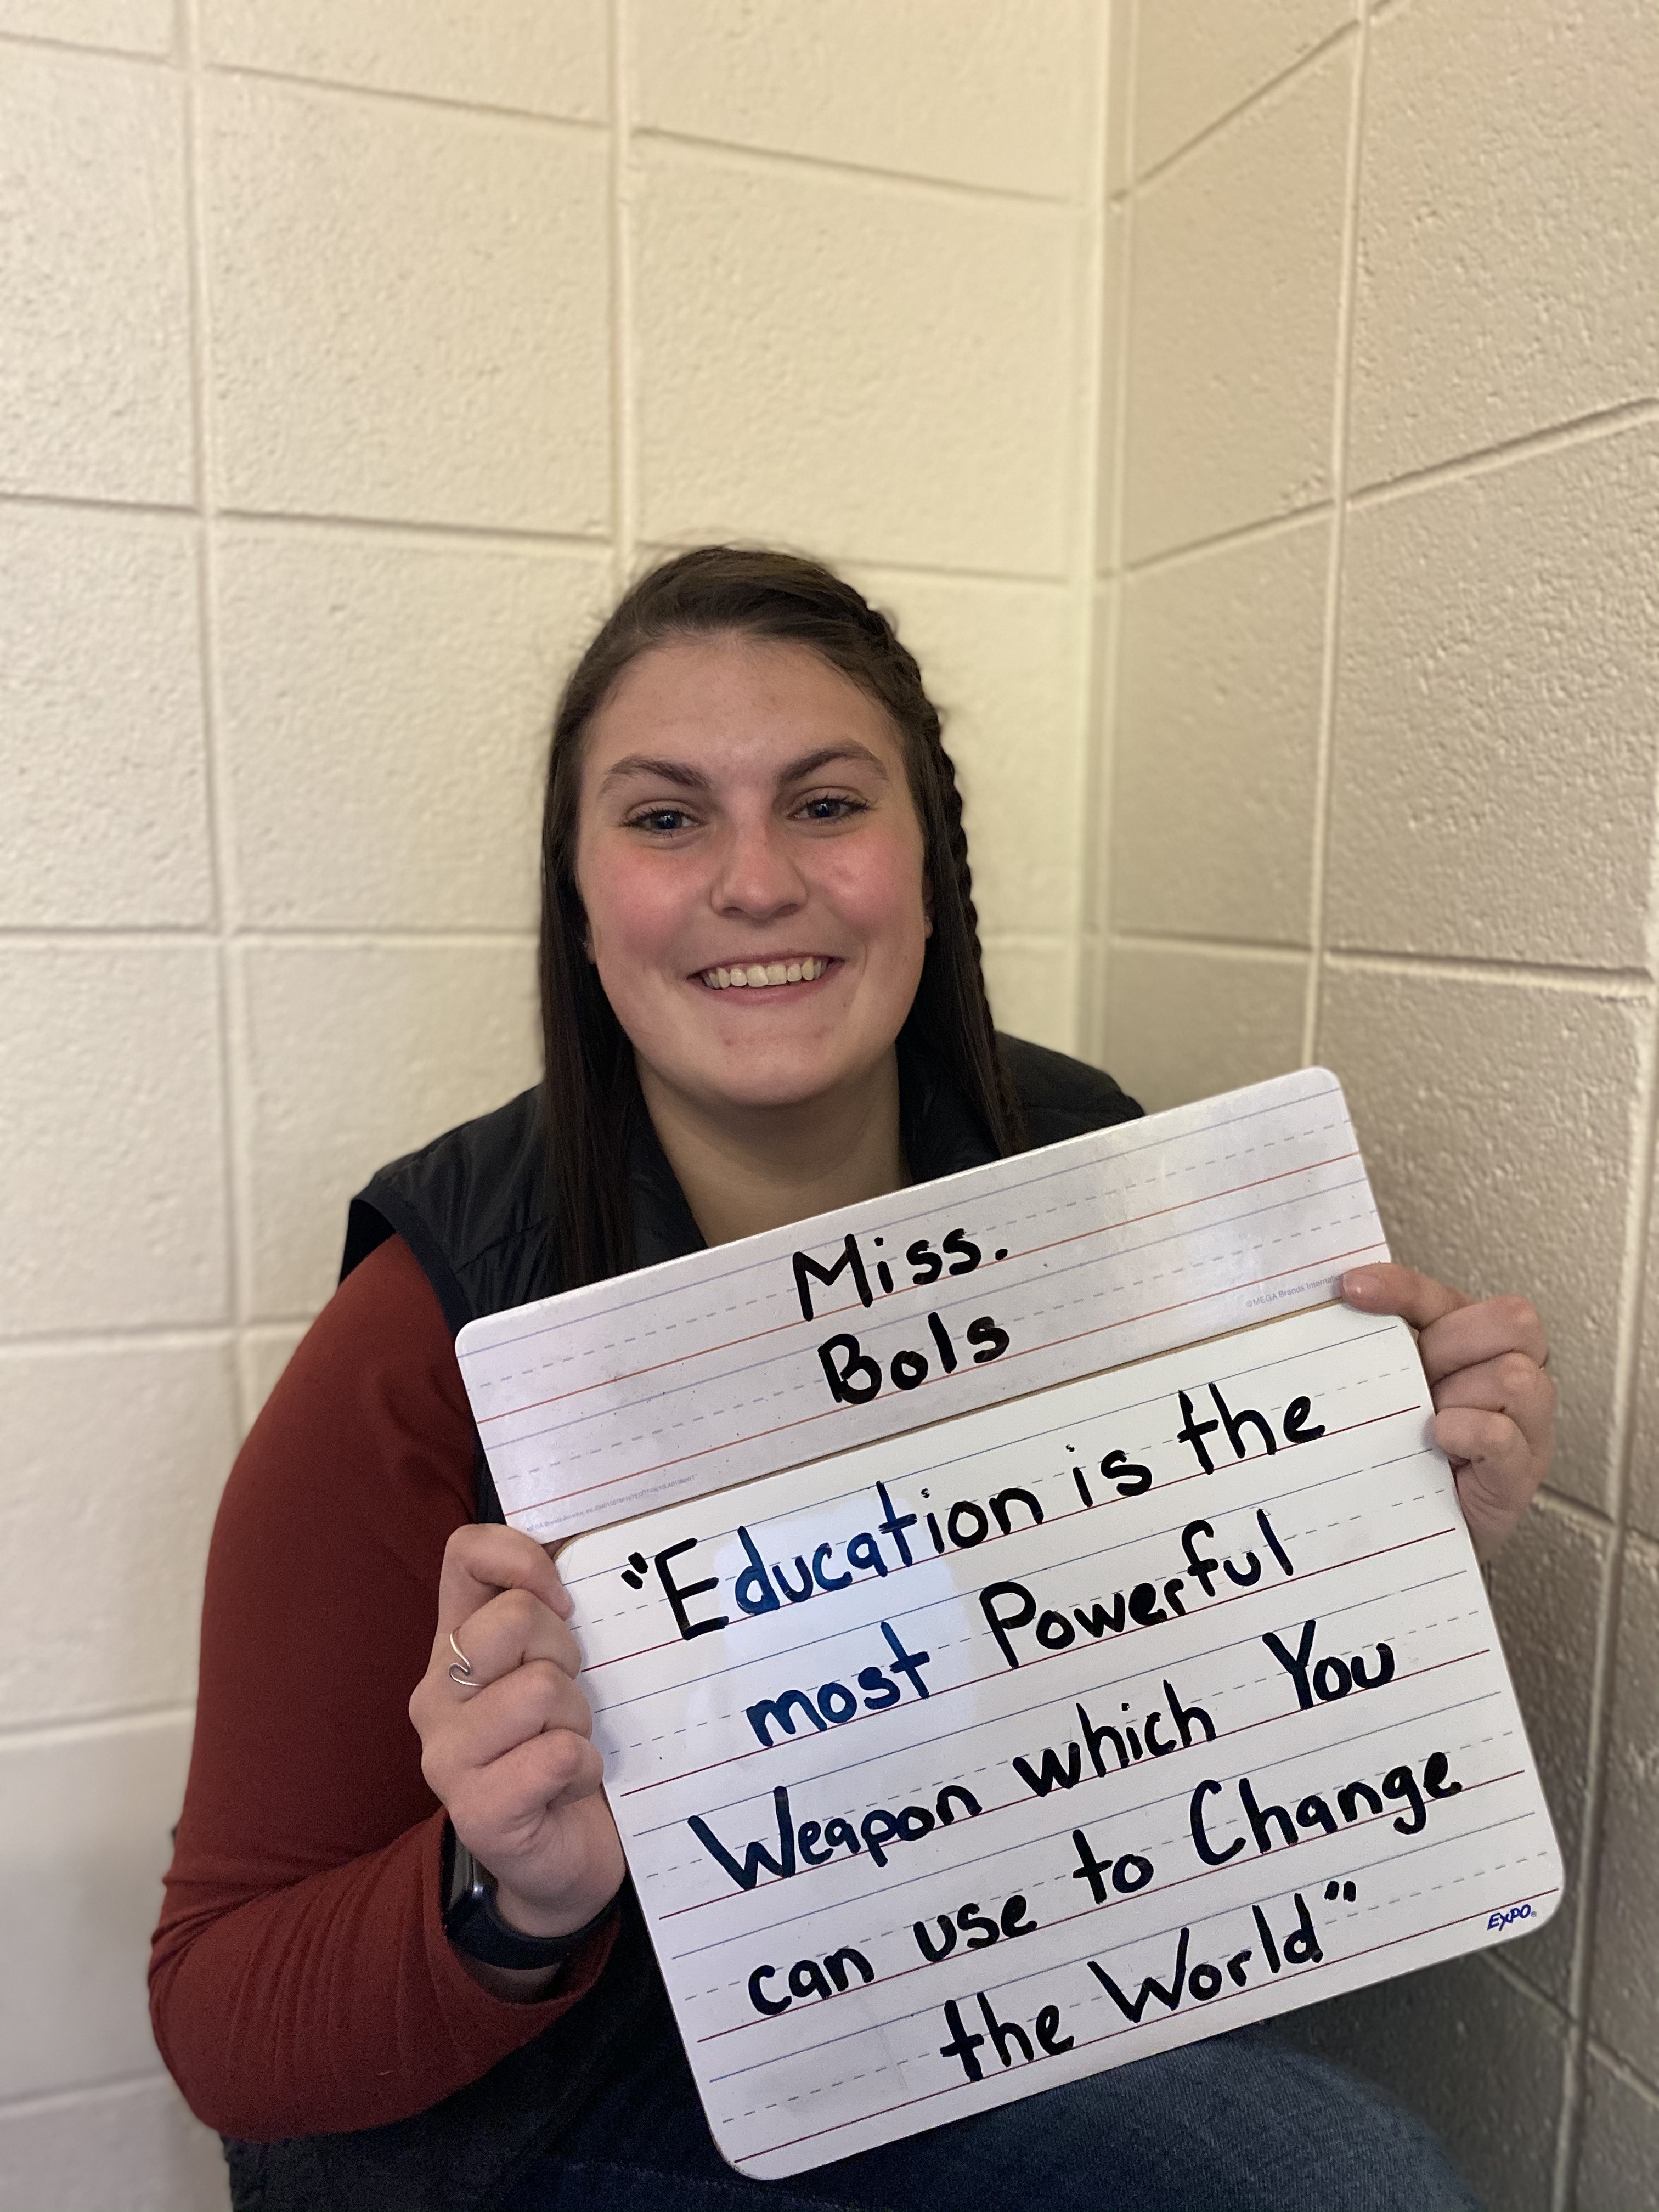 Miss.
Bols
©MEGA Brands Internatio
"Education is the
most Powerful
Weapon which You
can use to Change
the World"
EXPO®